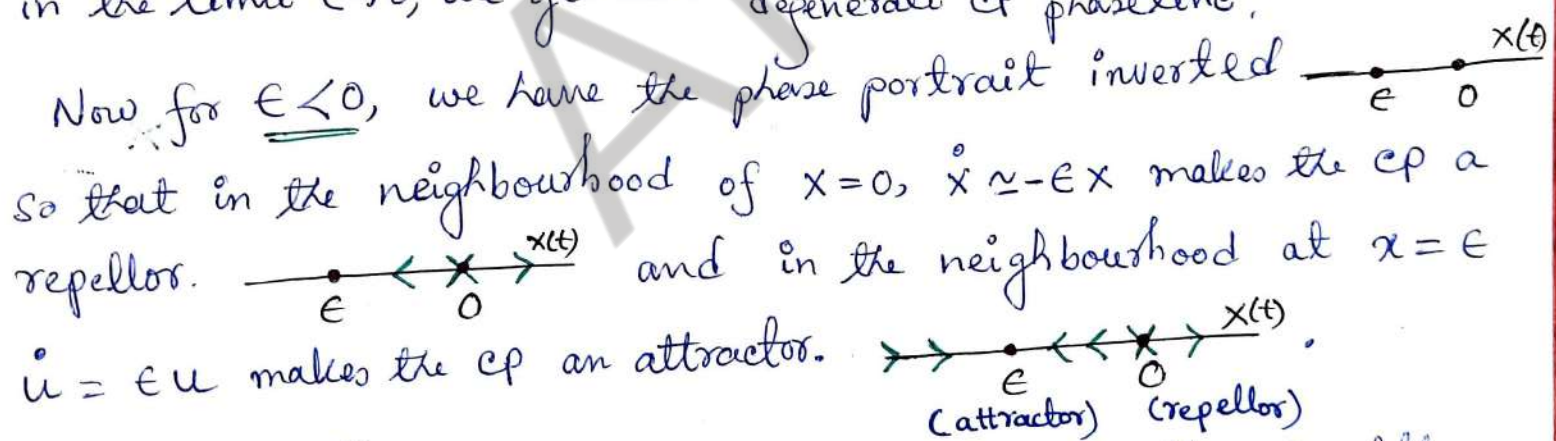 in the limit
Now for ϵ<0, we have the phase portrait inverted x(t) ϵ 0
so that in the neighbourhood of x=0, ẋ ≃ -ϵx makes the cp a
repellor. ϵ 0 x(t) and in the neighbourhood at x = ϵ
u̇ = ϵu makes the cp an attractor. ϵ 0 x(t) .
(attractor) (repellor)